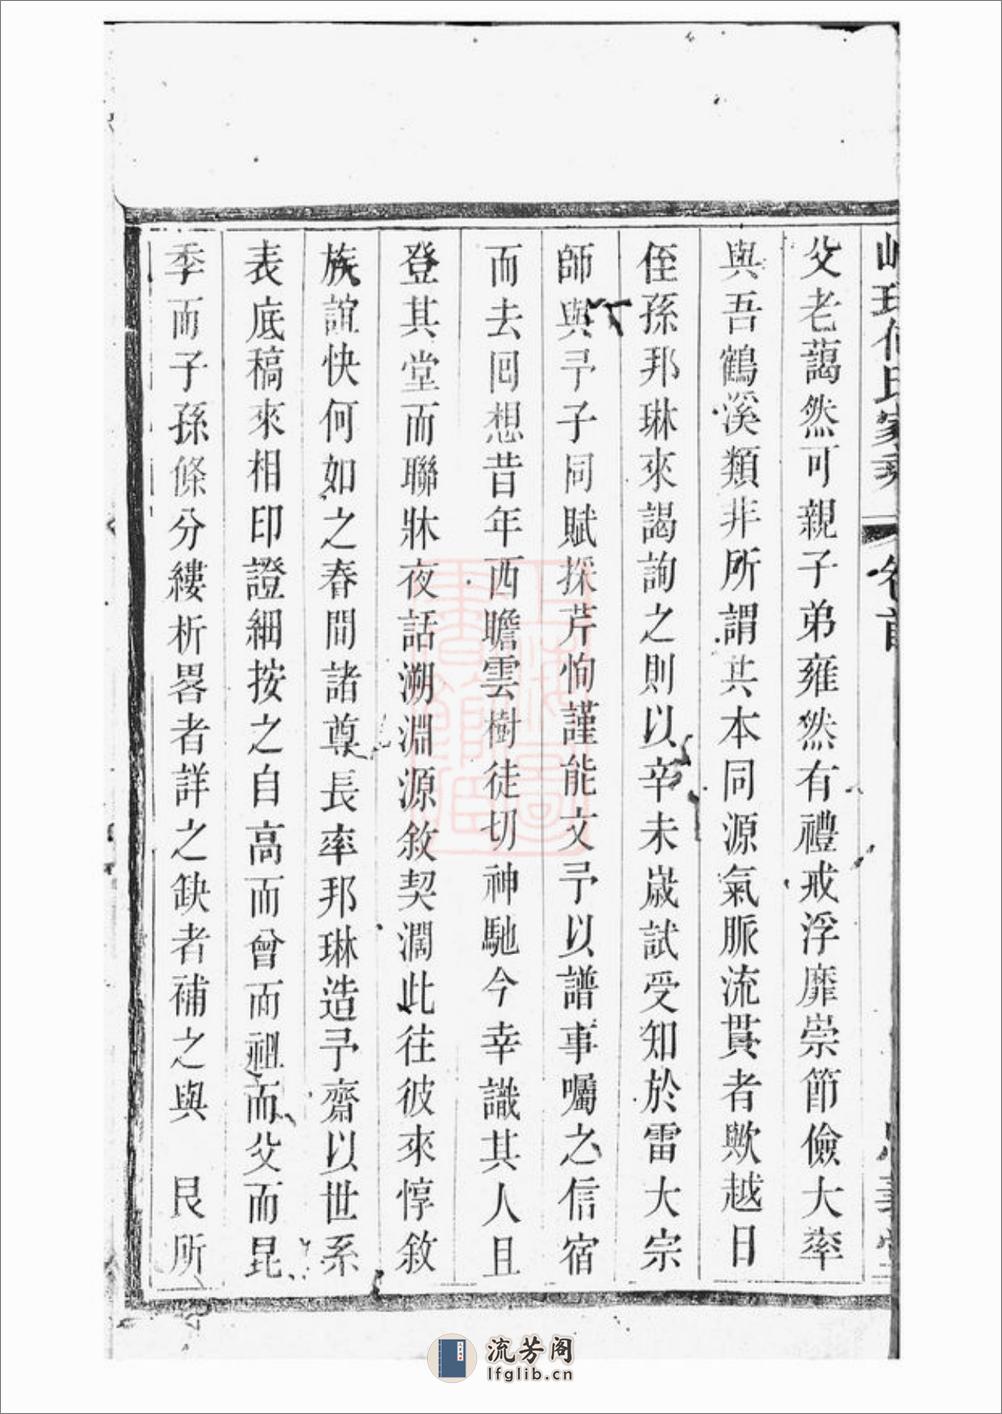 氏家乘
卷首
父老藹然可親子弟雍然有禮戒浮靡崇節儉大率
與吾鶴溪類非所謂共本同源氣脈流貫者歟越日
侄孫邦琳來謁詢之則以辛未歲試受知於雷大宗
師與予子同賦採芹恂謹能文予以譜事囑之信宿
而去回想昔年西瞻雲樹徒切神馳今幸識其人且
登其堂而聯牀夜話溯淵源敘契濶此往彼來惇敘
族誼快何如之春間諸尊長率邦琳造予齋以世系
表底稿來相印證細按之自高而曾而祖而父而昆
季而子孫條分縷析畧者詳之缺者補之與 艮所
上海圖書館藏
流芳阁
lfglib.cn